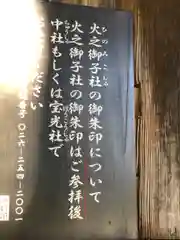 火之御子社の御朱印について
ひのみこしゃ
火之御子社の御朱印はご参拝後
中社もしくは宝光社で
ください
番号 〇二六-二五四-二〇〇一